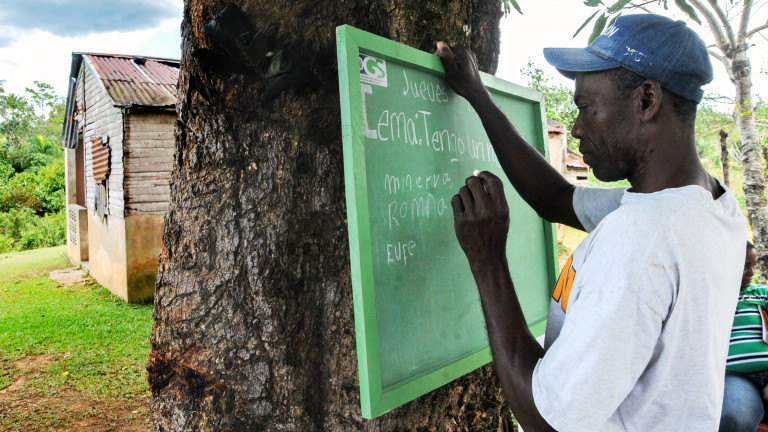 Jueves
Tema: Tengo un n
minerva
Romna
EUFE